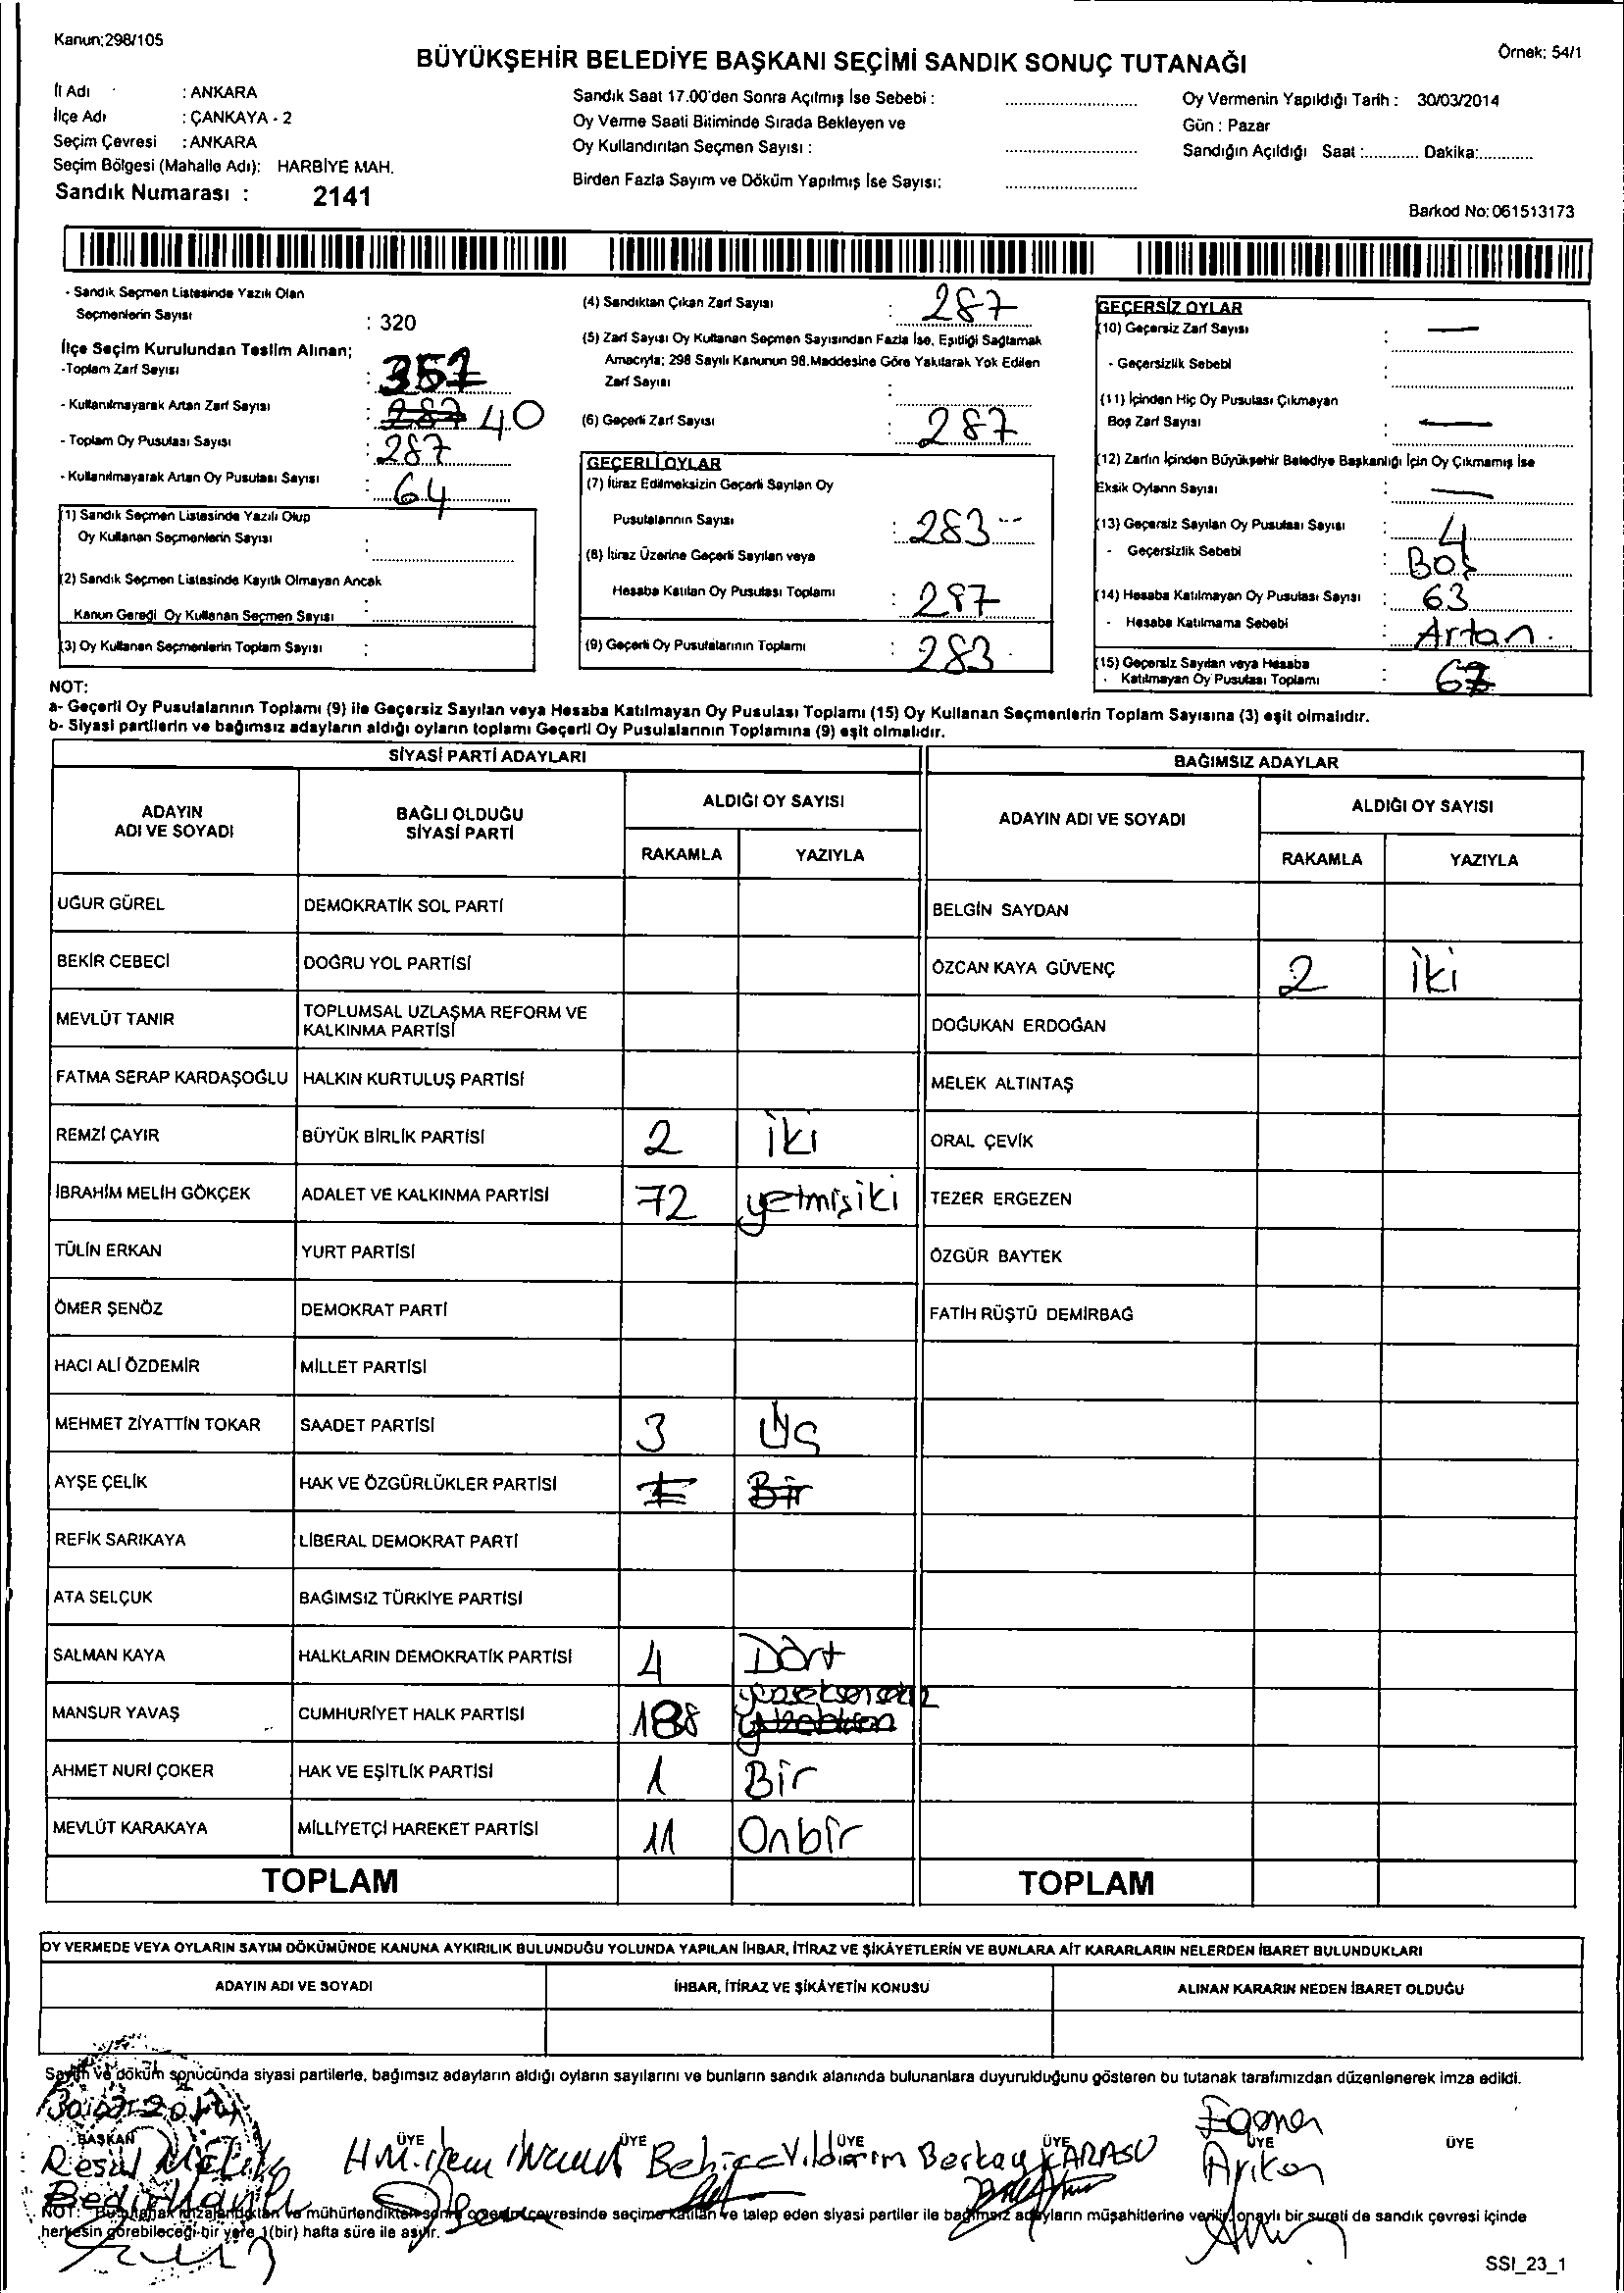 Kanun:298/105
BÜYÜKŞEHİR BELEDİYE BAŞKANI SEÇİMİ SANDIK SONUÇ TUTANAĞI
Örnek: 54/1
İl Adı : ANKARA
İlçe Adı : ÇANKAYA - 2
Seçim Çevresi : ANKARA
Seçim Bölgesi (Mahalle Adı): HARBİYE MAH.
Sandık Numarası : 2141
Sandık Saat 17.00'den Sonra Açılmış İse Sebebi :
Oy Verme Saati Bitiminde Sırada Bekleyen ve
Oy Kullandırılan Seçmen Sayısı :
Birden Fazla Sayım ve Döküm Yapılmış İse Sayısı:
Oy Vermenin Yapıldığı Tarih : 30/03/2014
Gün : Pazar
Sandığın Açıldığı Saat :............ Dakika:............
Barkod No: 061513173
- Sandık Seçmen Listesinde Yazılı Olan
Seçmenlerin Sayısı : 320
İlçe Seçim Kurulundan Teslim Alınan;
-Toplam Zarf Sayısı : 357
- Kullanılmayarak Artan Zarf Sayısı : 287 40
- Toplam Oy Pusulası Sayısı : 287
- Kullanılmayarak Artan Oy Pusulası Sayısı : 64
(1) Sandık Seçmen Listesinde Yazılı Olup
Oy Kullanan Seçmenlerin Sayısı :
(2) Sandık Seçmen Listesinde Kayıtlı Olmayan Ancak
Kanun Gereği Oy Kullanan Seçmen Sayısı :
(3) Oy Kullanan Seçmenlerin Toplam Sayısı :
(4) Sandıktan Çıkan Zarf Sayısı : 287
(5) Zarf Sayısı Oy Kullanan Seçmen Sayısından Fazla İse, Eşitliği Sağlamak
Amacıyla; 298 Sayılı Kanunun 98.Maddesine Göre Yakılarak Yok Edilen
Zarf Sayısı :
(6) Geçerli Zarf Sayısı : 287
GEÇERLİ OYLAR
(7) İtiraz Edilmeksizin Geçerli Sayılan Oy
Pusulalarının Sayısı : 283
(8) İtiraz Üzerine Geçerli Sayılan veya
Hesaba Katılan Oy Pusulası Toplamı : 287
(9) Geçerli Oy Pusulalarının Toplamı : 283
GEÇERSİZ OYLAR
(10) Geçersiz Zarf Sayısı : —
- Geçersizlik Sebebi :
(11) İçinden Hiç Oy Pusulası Çıkmayan
Boş Zarf Sayısı : —
(12) Zarfın İçinden Büyükşehir Belediye Başkanlığı İçin Oy Çıkmamış İse
Eksik Oyların Sayısı : —
(13) Geçersiz Sayılan Oy Pusulası Sayısı : 4
- Geçersizlik Sebebi : Boş
(14) Hesaba Katılmayan Oy Pusulası Sayısı : 63
- Hesaba Katılmama Sebebi : Artan.
(15) Geçersiz Sayılan veya Hesaba
Katılmayan Oy Pusulası Toplamı : 67
NOT:
a- Geçerli Oy Pusulalarının Toplamı (9) ile Geçersiz Sayılan veya Hesaba Katılmayan Oy Pusulası Toplamı (15) Oy Kullanan Seçmenlerin Toplam Sayısına (3) eşit olmalıdır.
b- Siyasi partilerin ve bağımsız adayların aldığı oyların toplamı Geçerli Oy Pusulalarının Toplamına (9) eşit olmalıdır.
SİYASİ PARTİ ADAYLARI
ADAYIN ADI VE SOYADI
BAĞLI OLDUĞU SİYASİ PARTİ
ALDIĞI OY SAYISI
RAKAMLA YAZIYLA
UĞUR GÜREL DEMOKRATİK SOL PARTİ
BEKİR CEBECİ DOĞRU YOL PARTİSİ
MEVLÜT TANIR TOPLUMSAL UZLAŞMA REFORM VE KALKINMA PARTİSİ
FATMA SERAP KARDAŞOĞLU HALKIN KURTULUŞ PARTİSİ
REMZİ ÇAYIR BÜYÜK BİRLİK PARTİSİ 2 iki
İBRAHİM MELİH GÖKÇEK ADALET VE KALKINMA PARTİSİ 72 yetmişiki
TÜLİN ERKAN YURT PARTİSİ
ÖMER ŞENÖZ DEMOKRAT PARTİ
HACI ALİ ÖZDEMİR MİLLET PARTİSİ
MEHMET ZİYATTİN TOKAR SAADET PARTİSİ 3 Üç
AYŞE ÇELİK HAK VE ÖZGÜRLÜKLER PARTİSİ 1 Bir
REFİK SARIKAYA LİBERAL DEMOKRAT PARTİ
ATA SELÇUK BAĞIMSIZ TÜRKİYE PARTİSİ
SALMAN KAYA HALKLARIN DEMOKRATİK PARTİSİ 4 Dört
MANSUR YAVAŞ CUMHURİYET HALK PARTİSİ 188
AHMET NURİ ÇOKER HAK VE EŞİTLİK PARTİSİ 1 Bir
MEVLÜT KARAKAYA MİLLİYETÇİ HAREKET PARTİSİ 11 Onbir
TOPLAM
BAĞIMSIZ ADAYLAR
ADAYIN ADI VE SOYADI
ALDIĞI OY SAYISI
RAKAMLA YAZIYLA
BELGİN SAYDAN
ÖZCAN KAYA GÜVENÇ 2 iki
DOĞUKAN ERDOĞAN
MELEK ALTINTAŞ
ORAL ÇEVİK
TEZER ERGEZEN
ÖZGÜR BAYTEK
FATİH RÜŞTÜ DEMİRBAĞ
TOPLAM
OY VERMEDE VEYA OYLARIN SAYIM DÖKÜMÜNDE KANUNA AYKIRILIK BULUNDUĞU YOLUNDA YAPILAN İHBAR, İTİRAZ VE ŞİKÂYETLERİN VE BUNLARA AİT KARARLARIN NELERDEN İBARET BULUNDUKLARI
ADAYIN ADI VE SOYADI
İHBAR, İTİRAZ VE ŞİKÂYETİN KONUSU
ALINAN KARARIN NEDEN İBARET OLDUĞU
Sayım ve döküm sonucunda siyasi partilerle, bağımsız adayların aldığı oyların sayılarını ve bunların sandık alanında bulunanlara duyurulduğunu gösteren bu tutanak tarafımızdan düzenlenerek imza edildi.
BAŞKAN ÜYE ÜYE ÜYE ÜYE ÜYE ÜYE
Resul Behice Yıldırım Berkay KARASU
NOT: Bu tutanak imzalandıktan ve mühürlendikten sonra çevresinde seçime katılan ve talep eden siyasi partiler ile bağımsız adayların müşahitlerine verilir, onaylı bir sureti de sandık çevresi içinde
herkesin görebileceği bir yere 1(bir) hafta süre ile asılır.
SSI_23_1